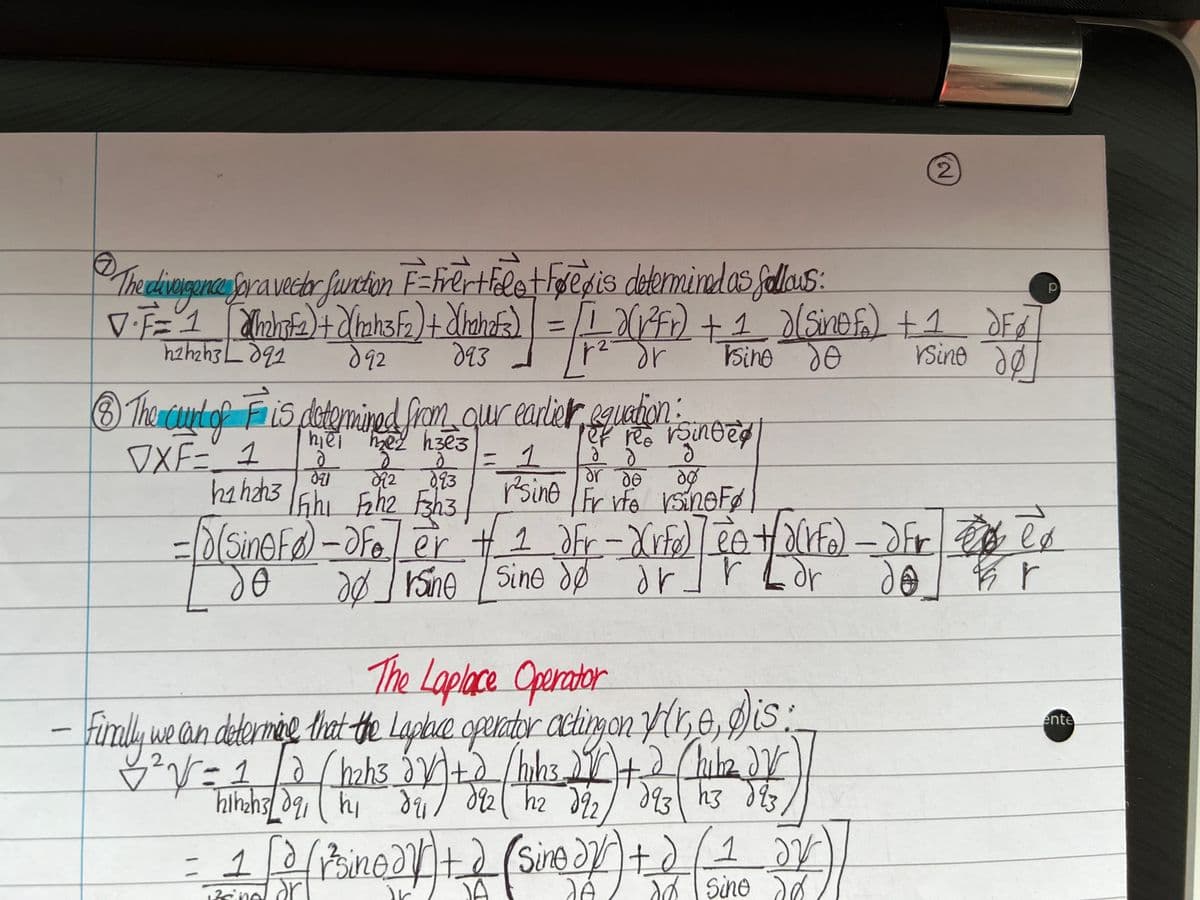 ②
⑦ The divergence for a vector function F⃗=Fre⃗r+Fθe⃗θ+Fφe⃗φ is determined as follows:
∇·F⃗= 1/(h1h2h3) [∂(h2h3F1)/∂q1 + ∂(h1h3F2)/∂q2 + ∂(h1h2F3)/∂q3] = [1/r² ∂(r²Fr)/∂r + 1/(rsinθ) ∂(sinθFθ)/∂θ + 1/(rsinθ) ∂Fφ/∂φ]
⑧ The curl of F⃗ is determined from our earlier equation:
∇XF⃗= 1/(h1h2h3) |h1e⃗1 h2e⃗2 h3e⃗3; ∂/∂q1 ∂/∂q2 ∂/∂q3; F1h1 F2h2 F3h3| = 1/(r²sinθ) |e⃗r re⃗θ rsinθe⃗φ; ∂/∂r ∂/∂θ ∂/∂φ; Fr rFθ rsinθFφ|
= [∂(sinθFφ)/∂θ − ∂Fθ/∂φ] e⃗r/(rsinθ) + [1/sinθ ∂Fr/∂φ − ∂(rFφ)/∂r] e⃗θ/r + [∂(rFθ)/∂r − ∂Fr/∂θ] e⃗φ/r
The Laplace Operator
- Finally we can determine that the Laplace operator acting on ψ(r,θ,φ) is:
∇²ψ = 1/(h1h2h3) [∂/∂q1 (h2h3/h1 ∂ψ/∂q1) + ∂/∂q2 (h1h3/h2 ∂ψ/∂q2) + ∂/∂q3 (h1h2/h3 ∂ψ/∂q3)]
= 1/(r²sinθ) [∂/∂r (r²sinθ ∂ψ/∂r) + ∂/∂θ (sinθ ∂ψ/∂θ) + ∂/∂φ (1/sinθ ∂ψ/∂φ)]
p
ente